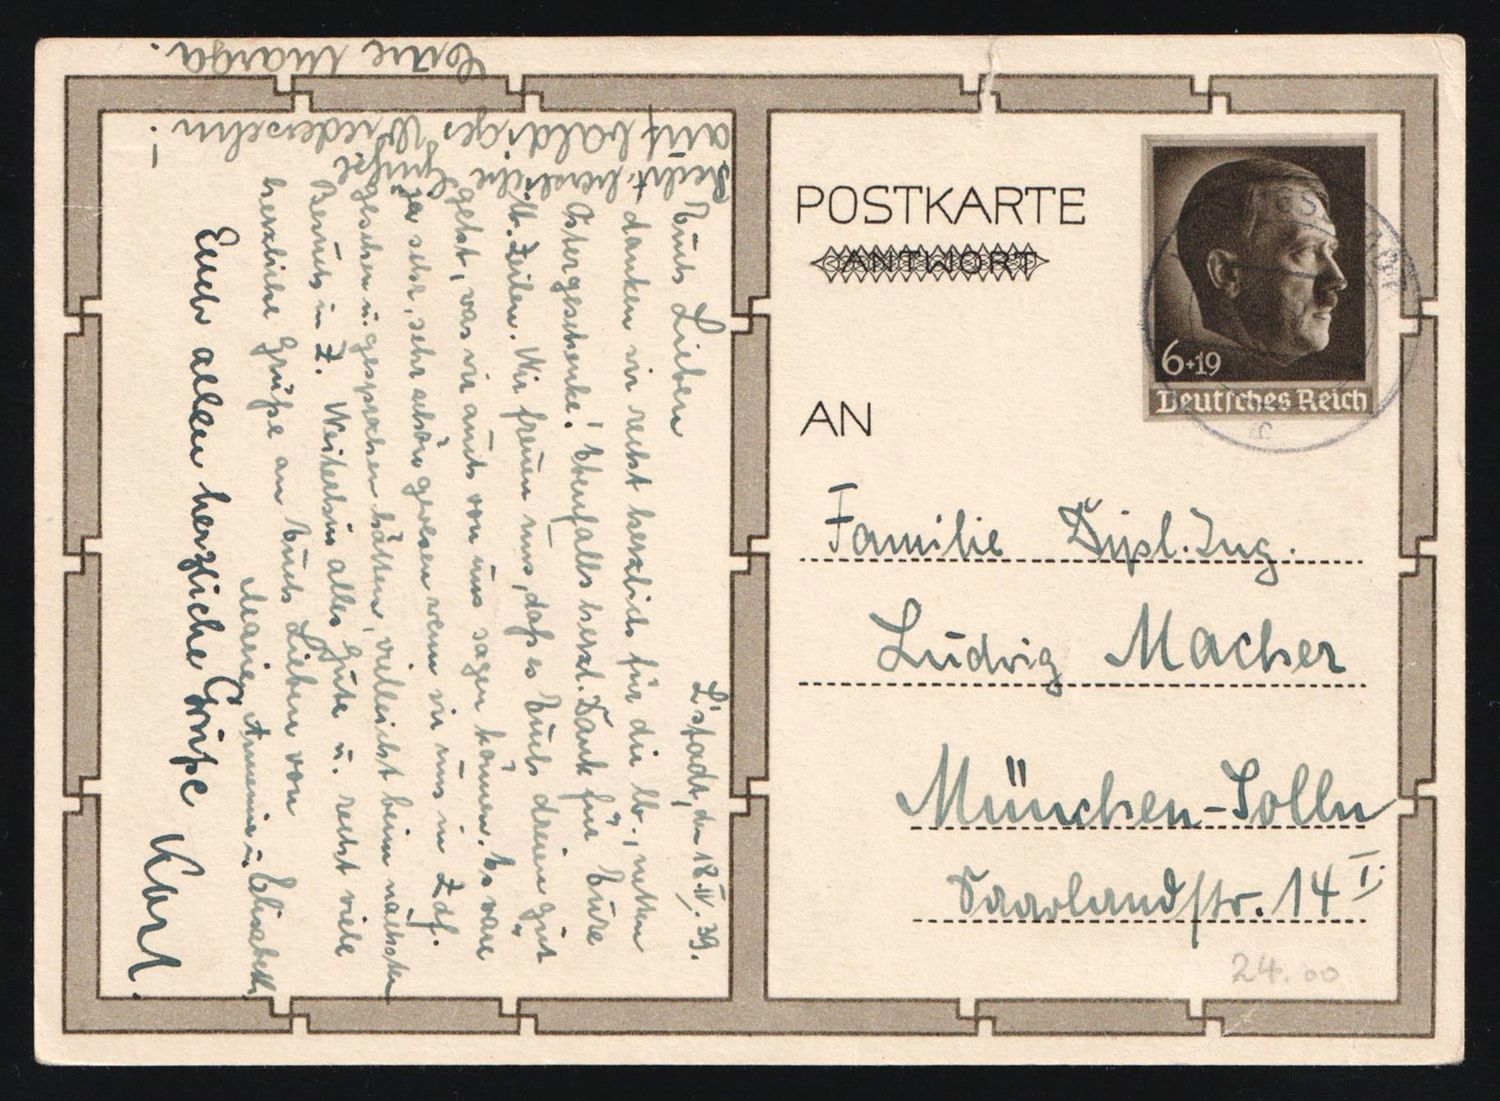 POSTKARTE
ANTWORT
6+19
Deutsches Reich
AN
Familie Dipl. Ing.
Ludwig Macher
München-Solln
Saarlandstr. 14 I.
24.00
L'stadt, den 18.IV.39.
Euch Lieben
danken wir recht herzlich für die lb., netten
Ostergeschenke! Ebenfalls herzl. Dank für Eure
lb. Zeilen. Wir freuen uns, daß es Euch dreien gut
geht, was wir auch von uns sagen können. Es wäre
ja sehr, sehr schön gewesen wenn wir uns in Zdf.
gesehen u. gesprochen hätten, vielleicht beim nächsten
Besuch in Z. Weiterhin alles Gute u. recht viele
herzliche Grüße an Euch Lieben von
Marie, u. Elisabeth.
Euch allen herzliche Grüße
Karl.
Recht herzliche Grüße
auf baldiges Wiedersehn!
Eure Marga!